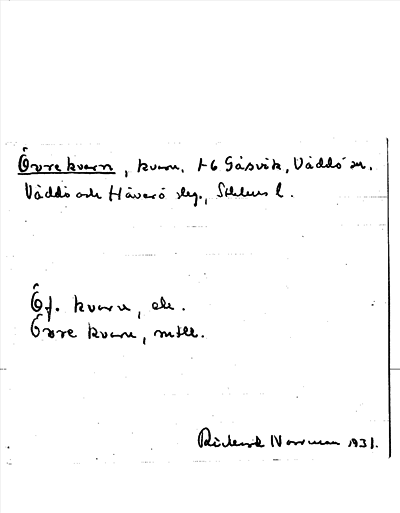 Övre kvarn, kvarn, t 6 Gåsvik, Väddö sn.
Väddö och Häverö skg., Sthlms l.
Öf. kvarn, ek.
Övre kvarn, mtbl.
Rickard Norrman 1931.